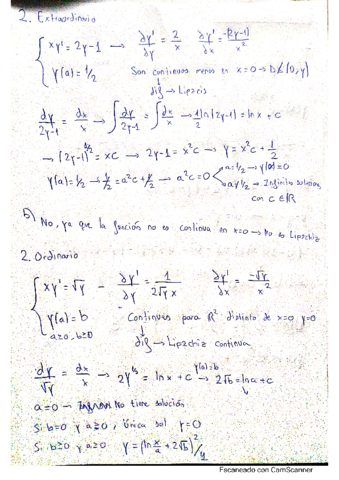 2. Extraordinario
{ xy' = 2y-1 → ∂y'/∂y = 2/x ∂y'/∂x = -(2y-1)/x²
y(a) = 1/2 Son continuas menos en x=0 →
→ Lipzcis
dy/2y-1 = dx/x → ∫dy/2y-1 = ∫dx/x → 1/2 ln(2y-1) = ln x + c
→ (2y-1)^1/2 = xC → 2y-1 = x²c → y = x²c + 1/2
y(a) = 1/2 → 1/2 = a²c + 1/2 → a²c = 0 → y(0) = 0
Infinitas soluciones
con c ∈ ℝ
b) No, ya que la función no es continua en x=0 → No es Lipschiz
2. Ordinario
{ xy' = √y - ∂y'/∂y = 1/2√y x ∂y'/∂x = -√y/x²
y(a) = b Continuas para ℝ² distinto de x=0, y=0
a≥0, b≥0 → Lipzchiz continua
dy/√y = dx/x → 2y^1/2 = ln x + c y(a)=b → 2√b = ln a + c
a=0 → No tiene solución
Si b=0 y a≥0, única sol y=0
Si b≥0 y a≥0 y = (ln x/a + 2√b)²/4
Escaneado con CamScanner